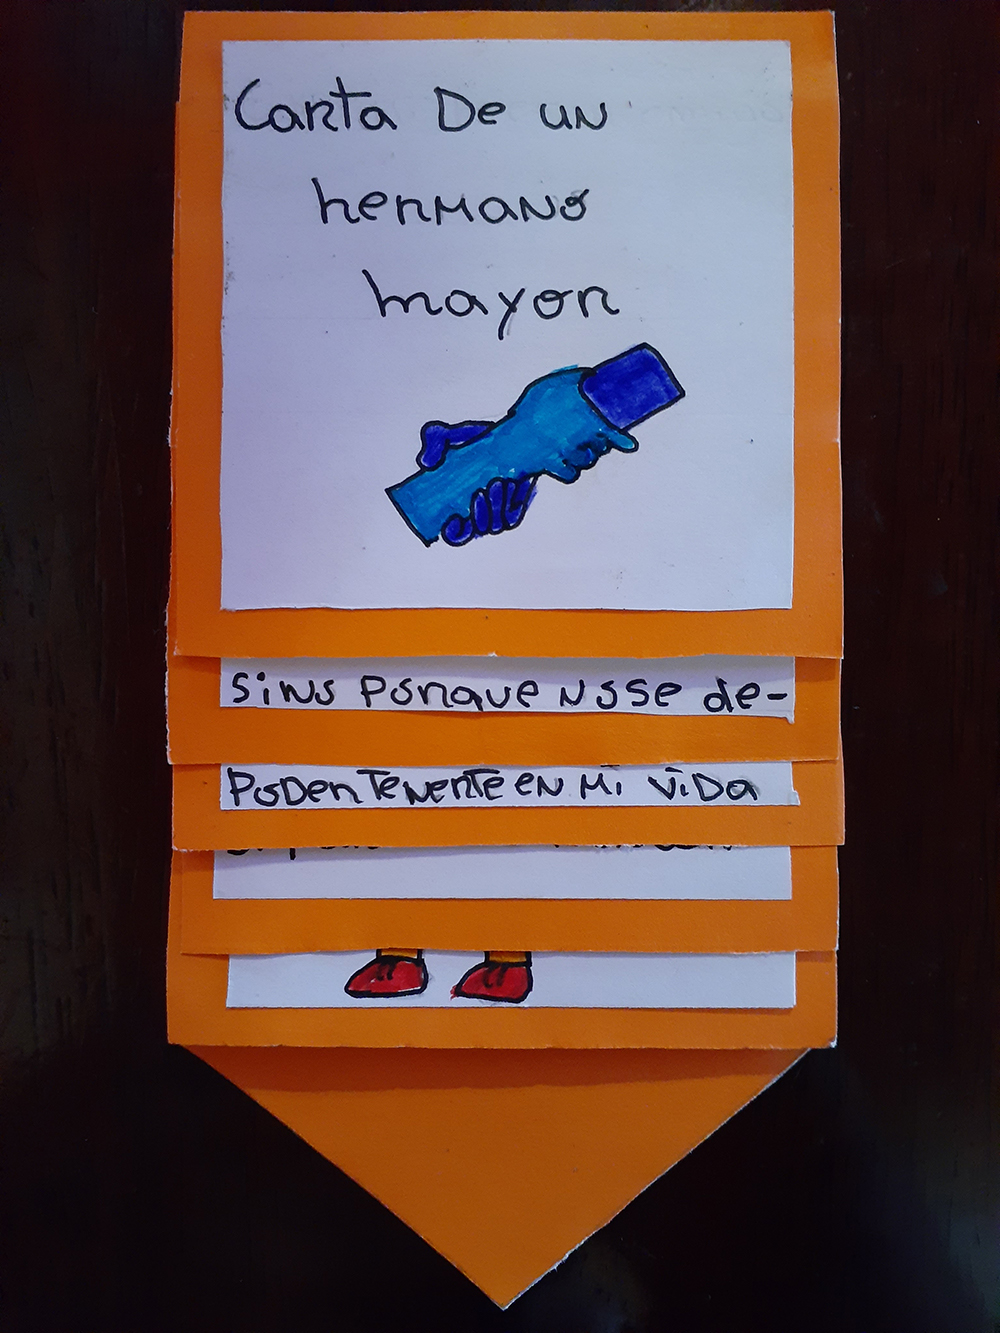 Carta De un
hermano
mayor
sino porque no se de-
poder tenerte en mi vida